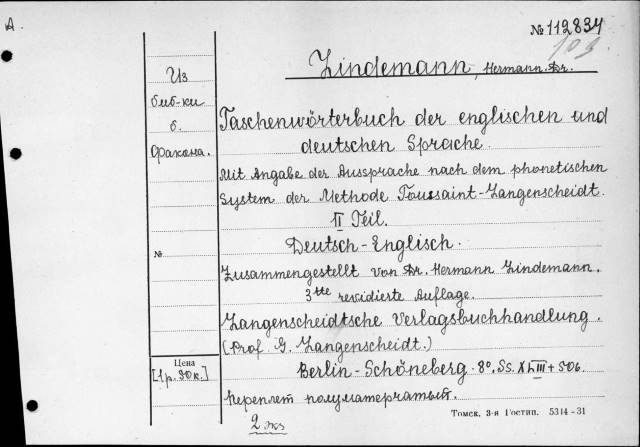 А.
№ 112834
103
Lindemann, Hermann Dr.
Из
биб-ки
б.
Фракана.
Taschenwörterbuch der englischen und
deutschen Sprache.
Mit Angabe der Aussprache nach dem phonetischen
System der Methode Toussaint-Langenscheidt.
II Teil.
Deutsch-Englisch.
№
Zusammengestellt von Dr. Hermann Lindemann.
3tte revidierte Auflage.
Langenscheidtsche Verlagsbuchhandlung.
(Prof. G. Langenscheidt.)
Цена
[1 р. 90 к.]
Berlin-Schöneberg. 8°, Ss. XLVIII + 506.
Переплет полуматерчатый.
2 экз
Томск, 3-я Гостип. 5314-31